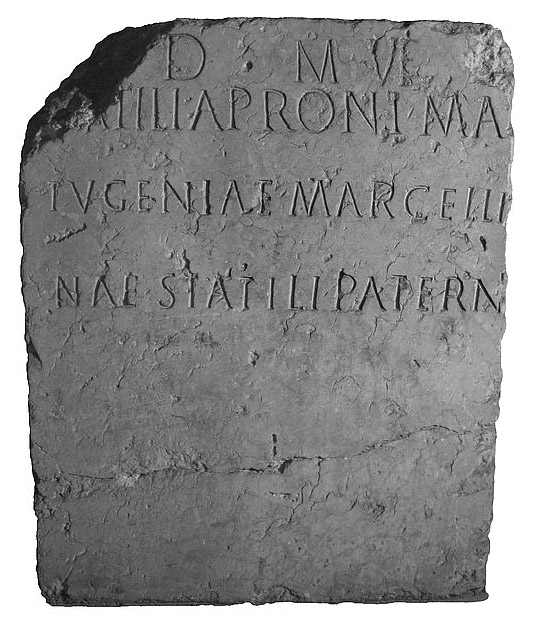 D M VE
ATILI APRONI MA
IVGENIAE MARCELLI
NAE STATILI PATERN